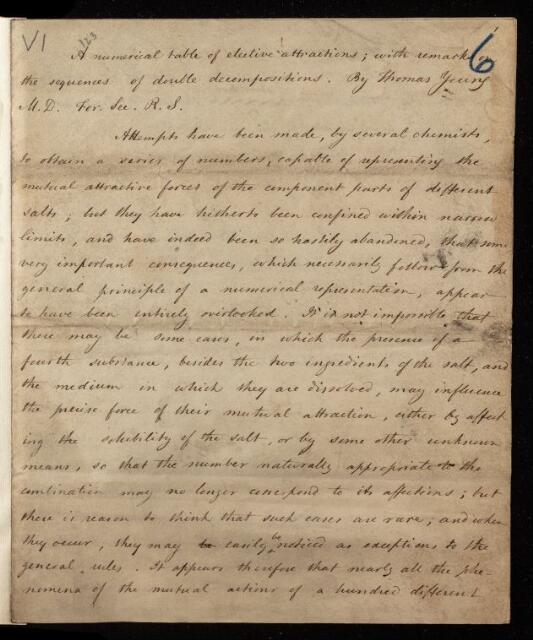 VI
123
6
A numerical table of elective attractions; with remarks on
the sequences of double decompositions. By Thomas Young
M.D. For. Sec. R.S.
Attempts have been made, by several chemists,
to obtain a series of numbers, capable of representing the
mutual attractive forces of the component parts of different
salts; but they have hitherto been confined within narrow
limits, and have indeed been so hastily abandoned, that some
very important consequences, which necessarily follow from the
general principle of a numerical representation, appear
to have been entirely overlooked. It is not impossible that
there may be some cases, in which the presence of a
fourth substance, besides the two ingredients of the salt, and
the medium in which they are dissolved, may influence
the precise force of their mutual attraction, either by affect
ing the solubility of the salt, or by some other unknown
means, so that the number naturally appropriate to the
combination may no longer correspond to its affections; but
there is reason to think that such cases are rare; and when
they occur, they may be easily be noticed as exceptions to the
general rules. It appears therefore that nearly all the phe-
nomena of the mutual actions of a hundred different